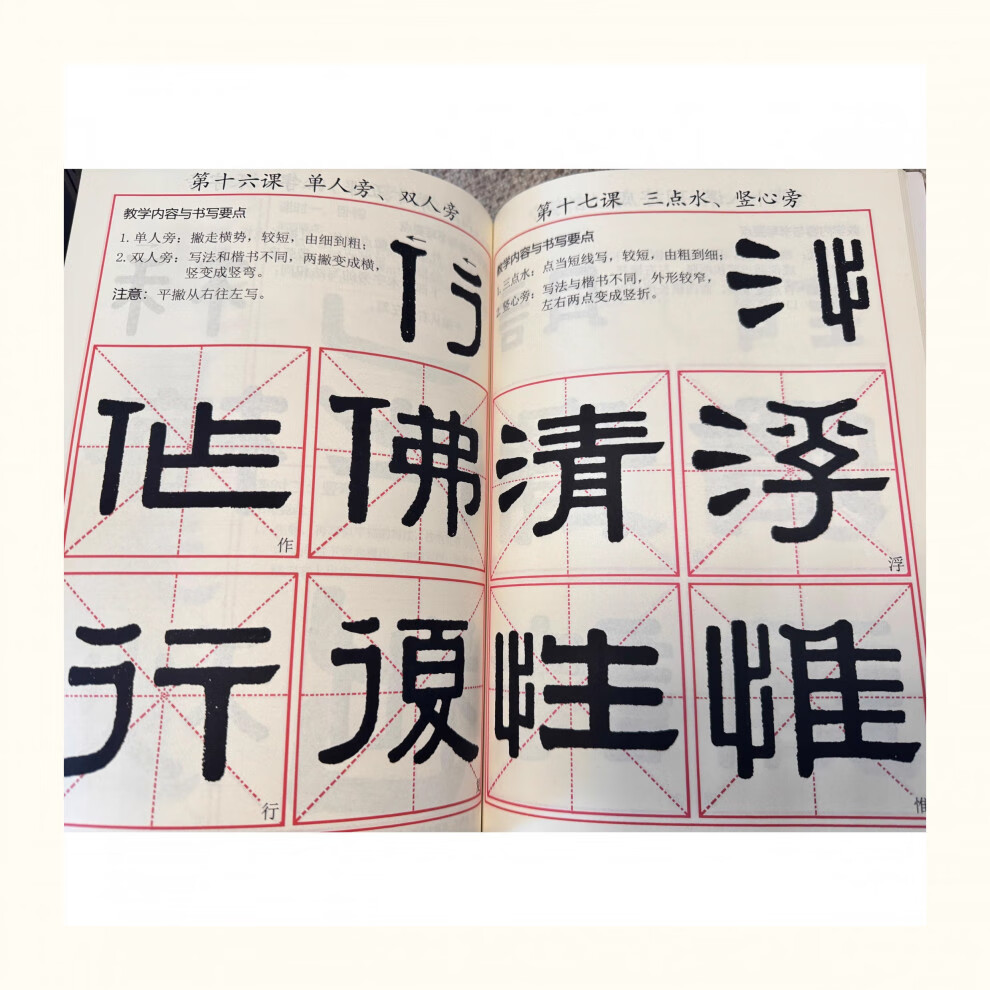 第十六课 单人旁、双人旁
教学内容与书写要点
1. 单人旁：撇走横势，较短，由细到粗；
2. 双人旁：写法和楷书不同，两撇变成横，
竖变成竖弯。
注意：平撇从右往左写。
作 佛
作
行 復
行
第十七课 三点水、竖心旁
教学内容与书写要点
1. 三点水：点当短线写，较短，由粗到细；
2. 竖心旁：写法与楷书不同，外形较窄，
左右两点变成竖折。
清 浮
浮
性 惟
惟